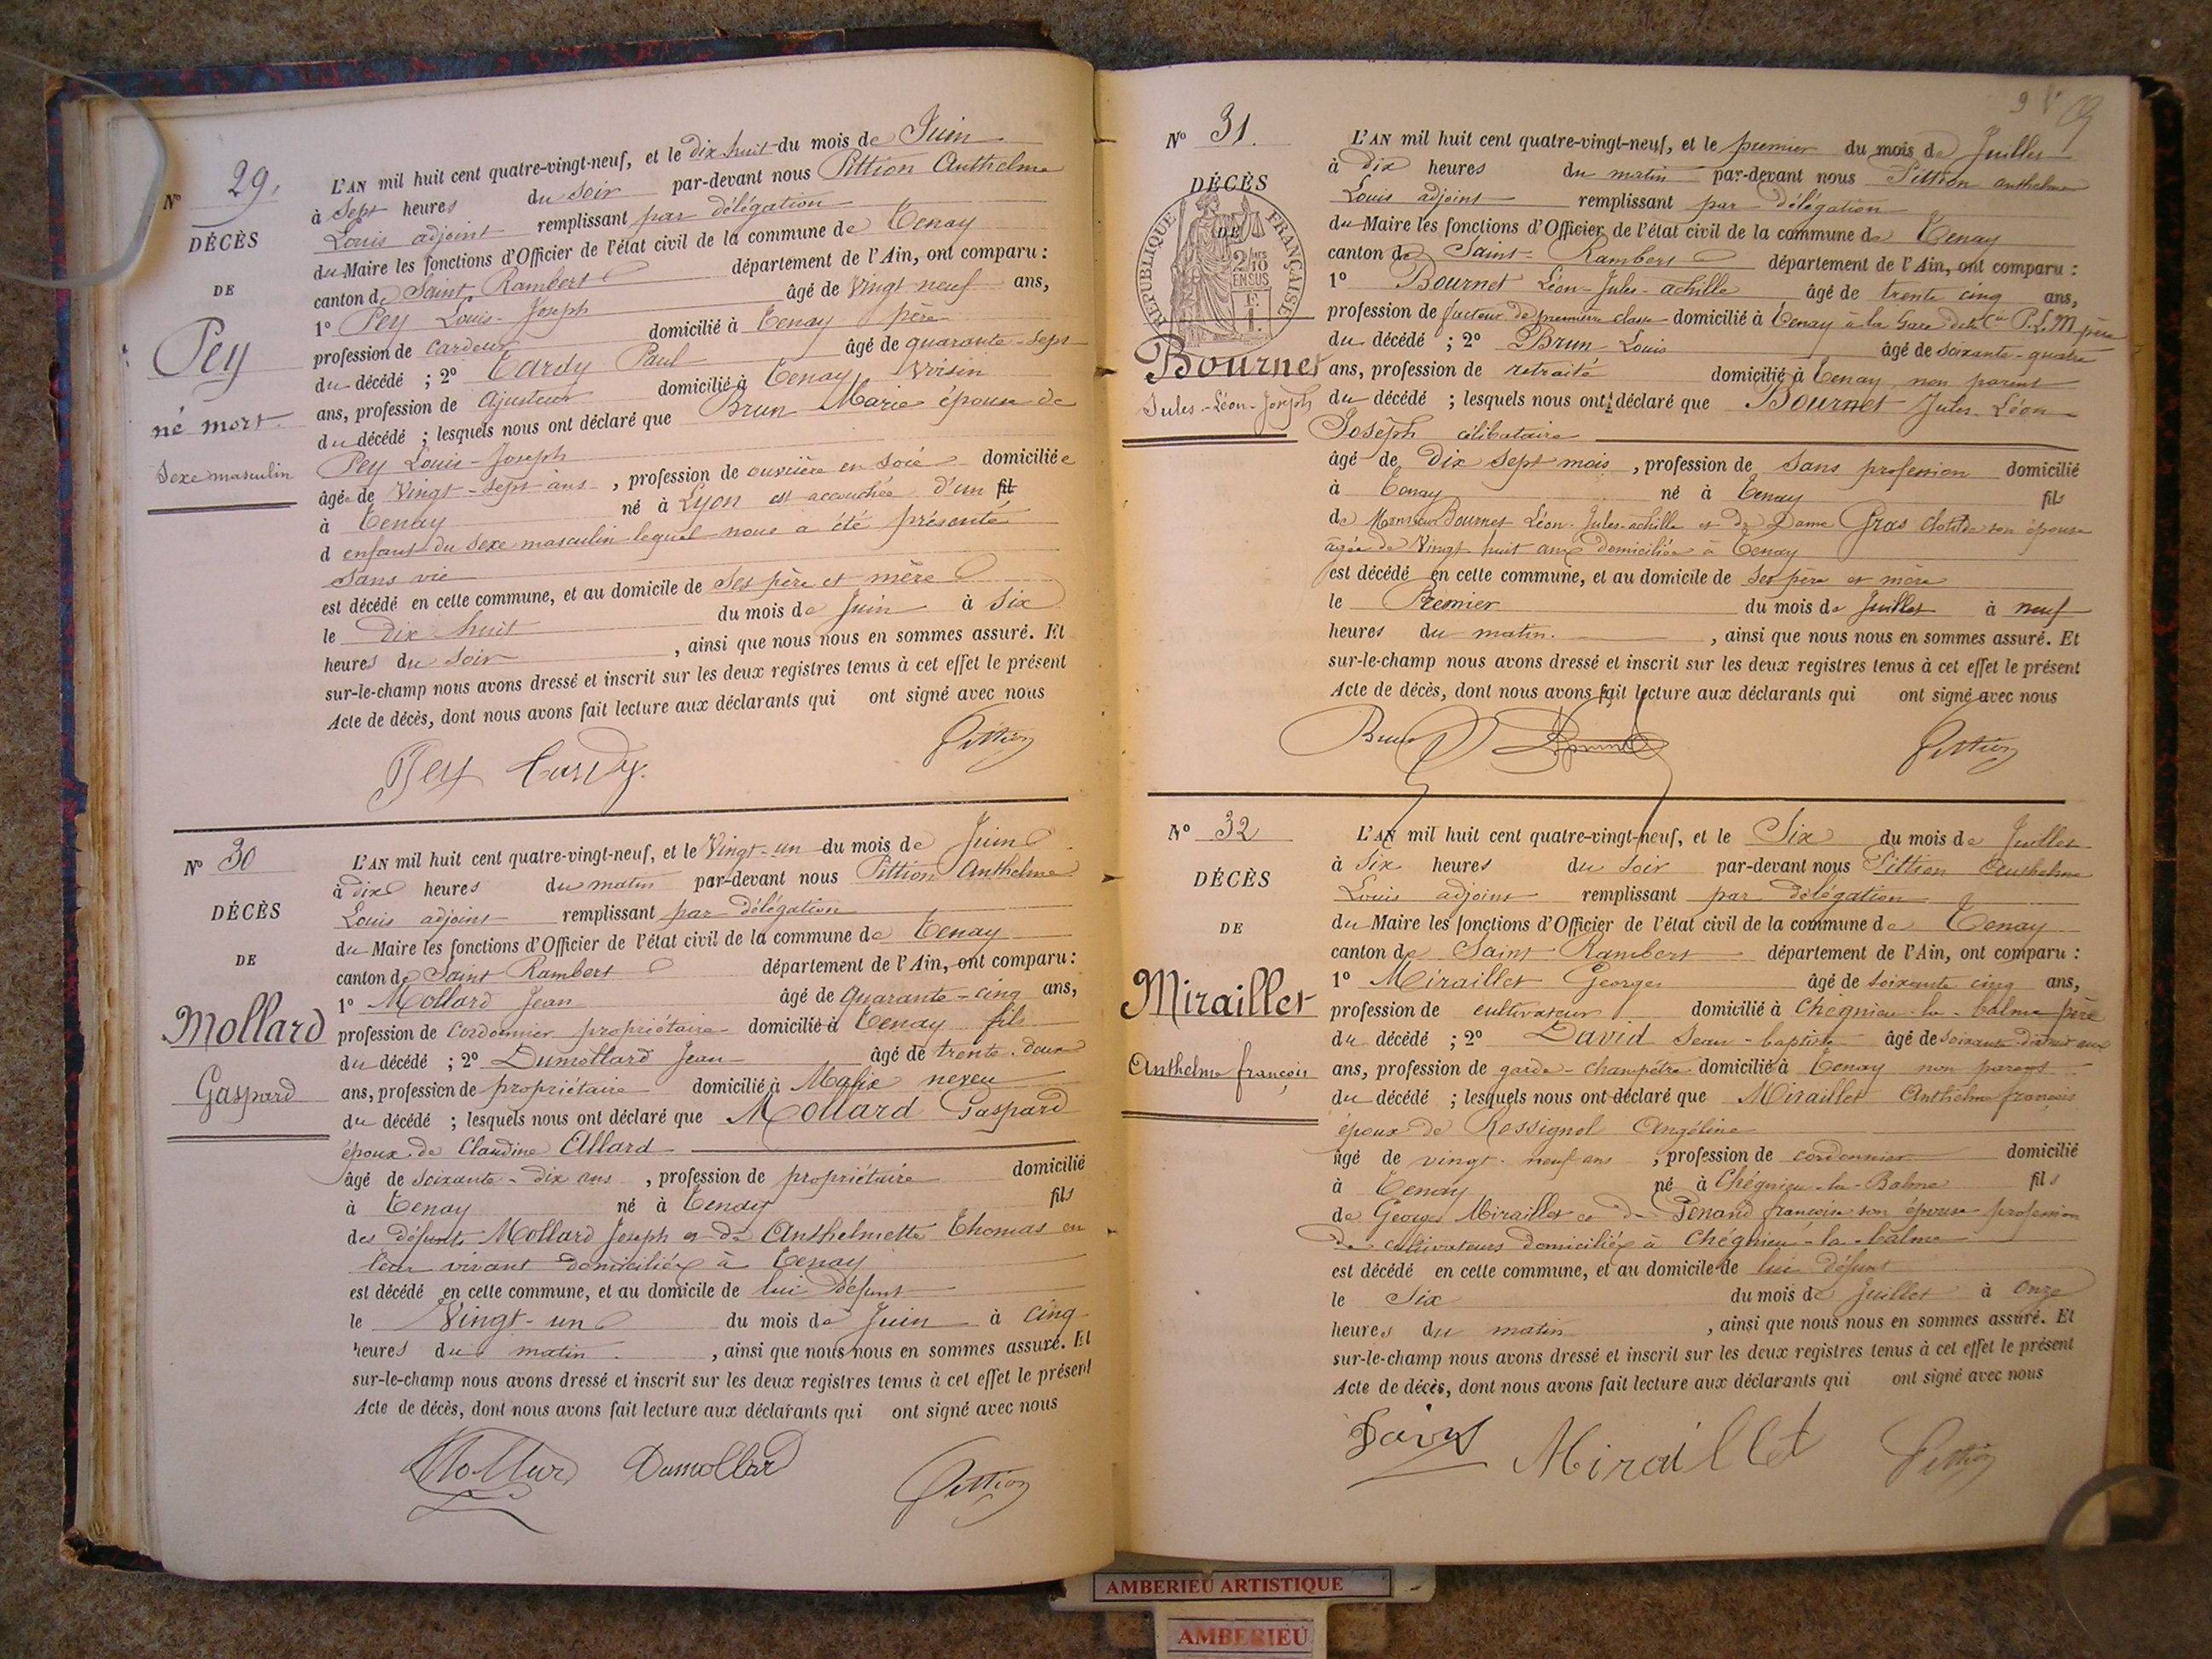 N° 29.
DÉCÈS
DE
Pey
né mort
Sexe masculin
L'AN mil huit cent quatre-vingt-neuf, et le dix huit du mois de Juin
à Sept heures du soir par-devant nous Pittion Anthelme
Louis adjoint remplissant par délégation
du Maire les fonctions d'Officier de l'état civil de la commune de Tenay
canton de Saint Rambert département de l'Ain, ont comparu :
1° Pey Louis-Joseph âgé de Vingt neuf ans,
profession de cardeur domicilié à Tenay père
du décédé ; 2° Tardy Paul âgé de quarante-sept
ans, profession de ajusteur domicilié à Tenay, Voisin
du décédé ; lesquels nous ont déclaré que Brun Marie épouse de
Pey Louis-Joseph
âgée de Vingt-sept ans, profession de ouvrière en soie domiciliée
à Tenay né à Lyon est accouchée d'un fil
d enfant du sexe masculin lequel nous a été présenté
sans vie
est décédé en cette commune, et au domicile de ses père et mère
le dix huit du mois de Juin à six
heures du soir , ainsi que nous nous en sommes assuré. Et
sur-le-champ nous avons dressé et inscrit sur les deux registres tenus à cet effet le présent
Acte de décès, dont nous avons fait lecture aux déclarants qui ont signé avec nous
Pey Tardy Pittion
N° 30
DÉCÈS
DE
Mollard
Gaspard
L'AN mil huit cent quatre-vingt-neuf, et le Vingt-un du mois de Juin
à dix heures du matin par-devant nous Pittion Anthelme
Louis adjoint remplissant par délégation
du Maire les fonctions d'Officier de l'état civil de la commune de Tenay
canton de Saint Rambert département de l'Ain, ont comparu :
1° Mollard Jean âgé de quarante-cinq ans,
profession de cordonnier propriétaire domicilié à Tenay fils
du décédé ; 2° Dumollard Jean âgé de trente-deux
ans, profession de propriétaire domicilié à neveu
du décédé ; lesquels nous ont déclaré que Mollard Gaspard
époux de Claudine Allard
âgé de soixante-dix ans , profession de propriétaire domicilié
à Tenay né à Tenay fils
des défunts Mollard Joseph et de Anthelmette Thomas en
leur vivant domiciliés à Tenay
est décédé en cette commune, et au domicile de lui défunt
le Vingt-un du mois de Juin à cinq
heures du matin. , ainsi que nous nous en sommes assuré. Et
sur-le-champ nous avons dressé et inscrit sur les deux registres tenus à cet effet le présent
Acte de décès, dont nous avons fait lecture aux déclarants qui ont signé avec nous
Mollard Dumollard Pittion
N° 31.
DÉCÈS
DE
RÉPUBLIQUE FRANÇAISE
2/10 EN SUS
Bournet
Jules-Léon-Joseph
L'AN mil huit cent quatre-vingt-neuf, et le premier du mois de Juillet
à dix heures du matin par-devant nous Pittion anthelme
Louis adjoint remplissant par délégation
du Maire les fonctions d'Officier de l'état civil de la commune de Tenay
canton de Saint-Rambert département de l'Ain, ont comparu :
1° Bournet Léon-Jules-achille âgé de trente cinq ans,
profession de facteur de première classe domicilié à Tenay à la Gare de la Cie P.L.M père
du décédé ; 2° Brun Louis âgé de soixante-quatre
ans, profession de retraité domicilié à Tenay non parent
du décédé ; lesquels nous ont déclaré que Bournet Jules-Léon-
Joseph célibataire
âgé de dix sept mois , profession de sans profession domicilié
à Tenay né à Tenay fils
de Monsieur Bournet Léon-Jules-achille et de Dame Gros Clotilde son épouse
âgée de Vingt huit ans domiciliée à Tenay
est décédé en cette commune, et au domicile de ses père et mère
le Premier du mois de Juillet à neuf
heures du matin. , ainsi que nous nous en sommes assuré. Et
sur-le-champ nous avons dressé et inscrit sur les deux registres tenus à cet effet le présent
Acte de décès, dont nous avons fait lecture aux déclarants qui ont signé avec nous
Brun Pittion
N° 32
DÉCÈS
DE
Miraillet
Anthelme françois
L'AN mil huit cent quatre-vingt-neuf, et le Six du mois de Juillet
à six heures du soir par-devant nous Pittion Anthelme
Louis adjoint remplissant par délégation
du Maire les fonctions d'Officier de l'état civil de la commune de Tenay
canton de Saint-Rambert département de l'Ain, ont comparu :
1° Miraillet Georges âgé de soixante cinq ans,
profession de cultivateur domicilié à Chégnieu-la-balme père
du décédé ; 2° David Jean-baptiste âgé de
ans, profession de garde-champêtre domicilié à Tenay non parent
du décédé ; lesquels nous ont déclaré que Miraillet Anthelme françois
époux de Rossignol Angéline
âgé de vingt-neuf ans , profession de cordonnier domicilié
à Tenay né à Chégnieu-la-Balme fils
de Georges Miraillet et de Penand françoise son épouse profession
de cultivateurs domiciliés à Chégnieu-la-balme
est décédé en cette commune, et au domicile de lui défunt
le Six du mois de Juillet à onze
heures du matin , ainsi que nous nous en sommes assuré. Et
sur-le-champ nous avons dressé et inscrit sur les deux registres tenus à cet effet le présent
Acte de décès, dont nous avons fait lecture aux déclarants qui ont signé avec nous
David Miraillet Pittion
AMBERIEU ARTISTIQUE
AMBERIEU